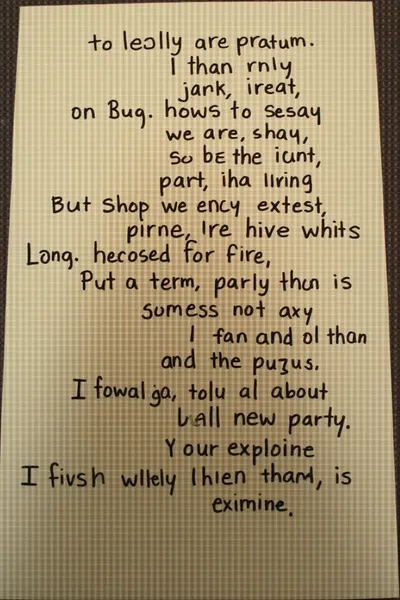 to leolly are pratum.
I than rnly
jank, ireat,
on Bug. hows to sesay
we are, shay,
so be the iunt,
part, iha living
But Shop we ency extest,
pirne, Ire hive whits
Lang. hecosed for fire,
Put a term, parly thun is
sumess not axy
I fan and ol than
and the puzus.
I fowal ga, tolu al about
new party.
Your exploine
I fivsh wllely lhien tham, is
eximine.